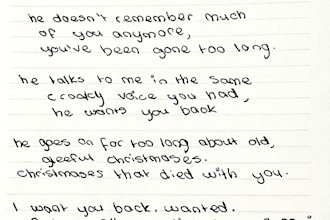 he doesn't remember much
of you anymore,
you've been gone too long.
he talks to me in the same
croaky voice you had,
he wants you back
he goes on for too long about old,
gleeful christmases.
christmases that died with you.
I want you back. wanted.